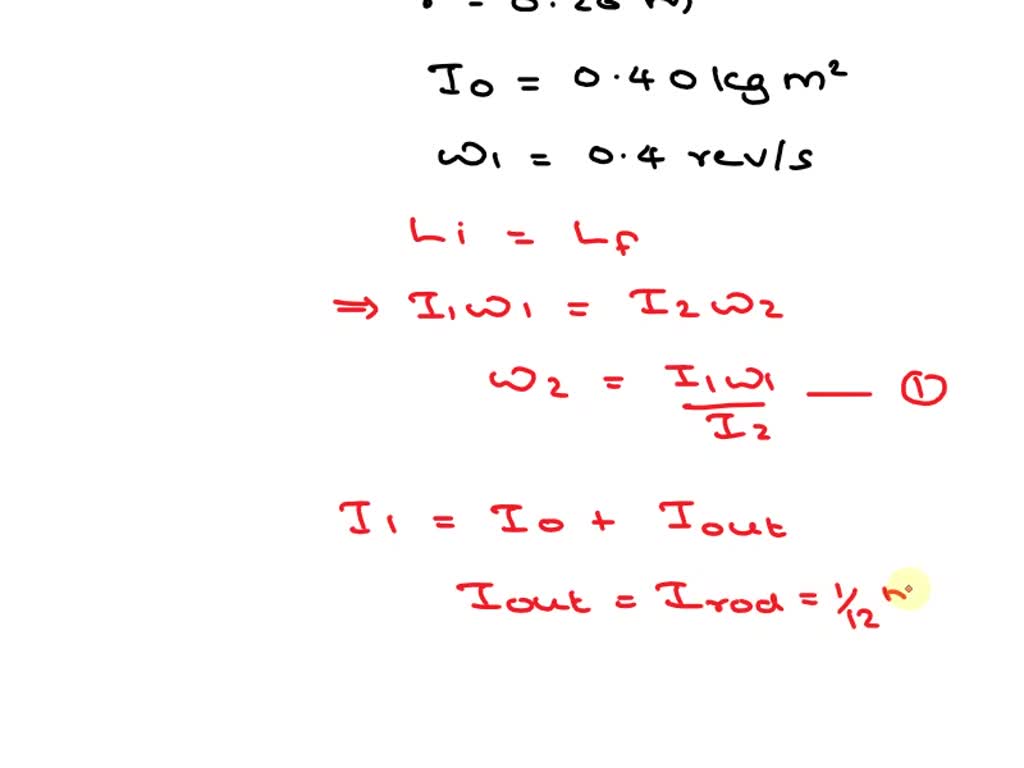 I₀ = 0.40 kg m²
ω₁ = 0.4 rev/s
Li = Lf
⇒ I₁ω₁ = I₂ω₂
ω₂ = I₁ω₁ / I₂ — ①
I₁ = I₀ + Iout
Iout = Irod = 1/12